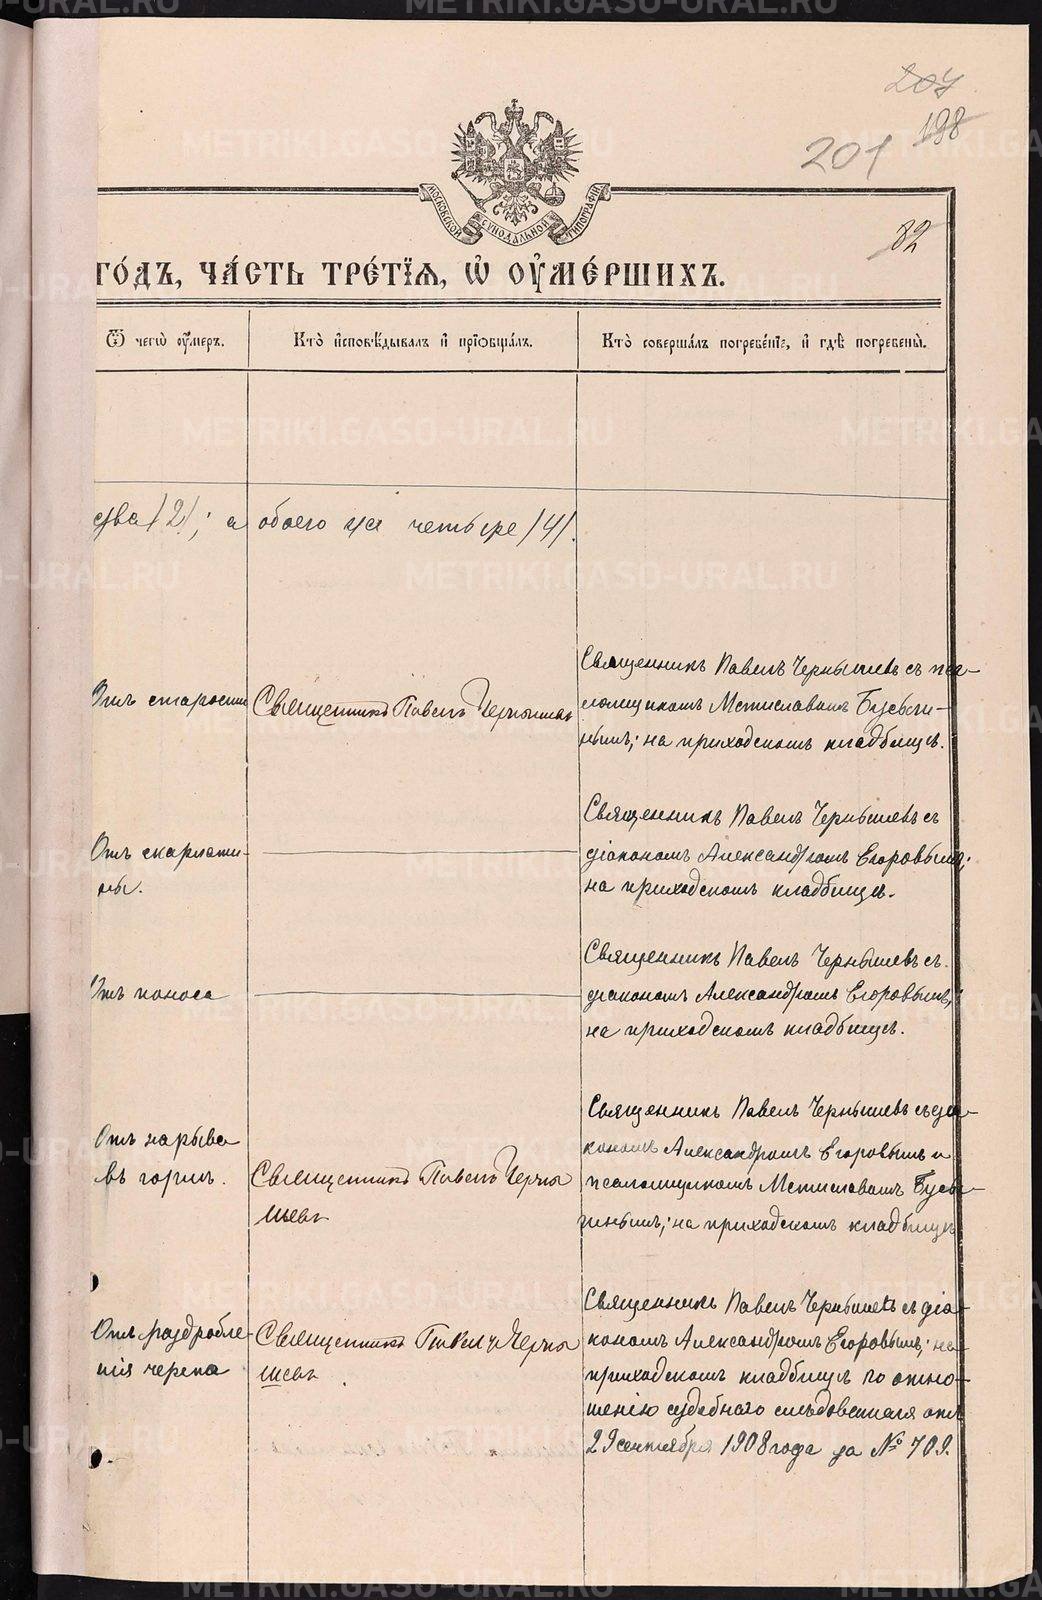 207
198
201
82
МОСКОВСКОЙ СѴНОДАЛЬНОЙ ТИПОГРАФІИ
ГО́ДЪ, ЧА́СТЬ ТРЕ́ТІѦ, Ѽ ОУ҆МЕ́РШИХЪ.
Ѿ чегѡ̀ оу҆́меръ.
Кто̀ и҆сповѣ́дывалъ и҆ прїѻбща́лъ.
Кто̀ соверша́лъ погребе́нїе, и҆ гдѣ̀ погребены̀.
два /2/; а обоего пола четыре /4/.
Отъ старости
Священникъ Павелъ Чернышевъ
Священникъ Павелъ Чернышевъ съ пса-
ломщикомъ Мстиславомъ Бусыги-
нымъ; на приходскомъ кладбищѣ.
Отъ скарлати-
ны.
Священникъ Павелъ Чернышевъ съ
діакономъ Александромъ Егоровымъ;
на приходскомъ кладбищѣ.
Отъ поноса
Священникъ Павелъ Чернышевъ съ
діакономъ Александромъ Егоровымъ;
на приходскомъ кладбищѣ.
Отъ нарыва
въ горлѣ.
Священникъ Павелъ Черны
шевъ
Священникъ Павелъ Чернышевъ съ діа-
кономъ Александромъ Егоровымъ и
псаломщикомъ Мстиславомъ Бусы-
гинымъ; на приходскомъ кладбищѣ
Отъ раздробле-
нія черепа
Священникъ Павелъ Черны
шевъ
Священникъ Павелъ Чернышевъ съ діа-
кономъ Александромъ Егоровымъ; на
приходскомъ кладбищѣ по отно-
шенію судебнаго слѣдователя отъ
29 сентября 1908 года за № 709.
METRIKI.GASO-URAL.RU